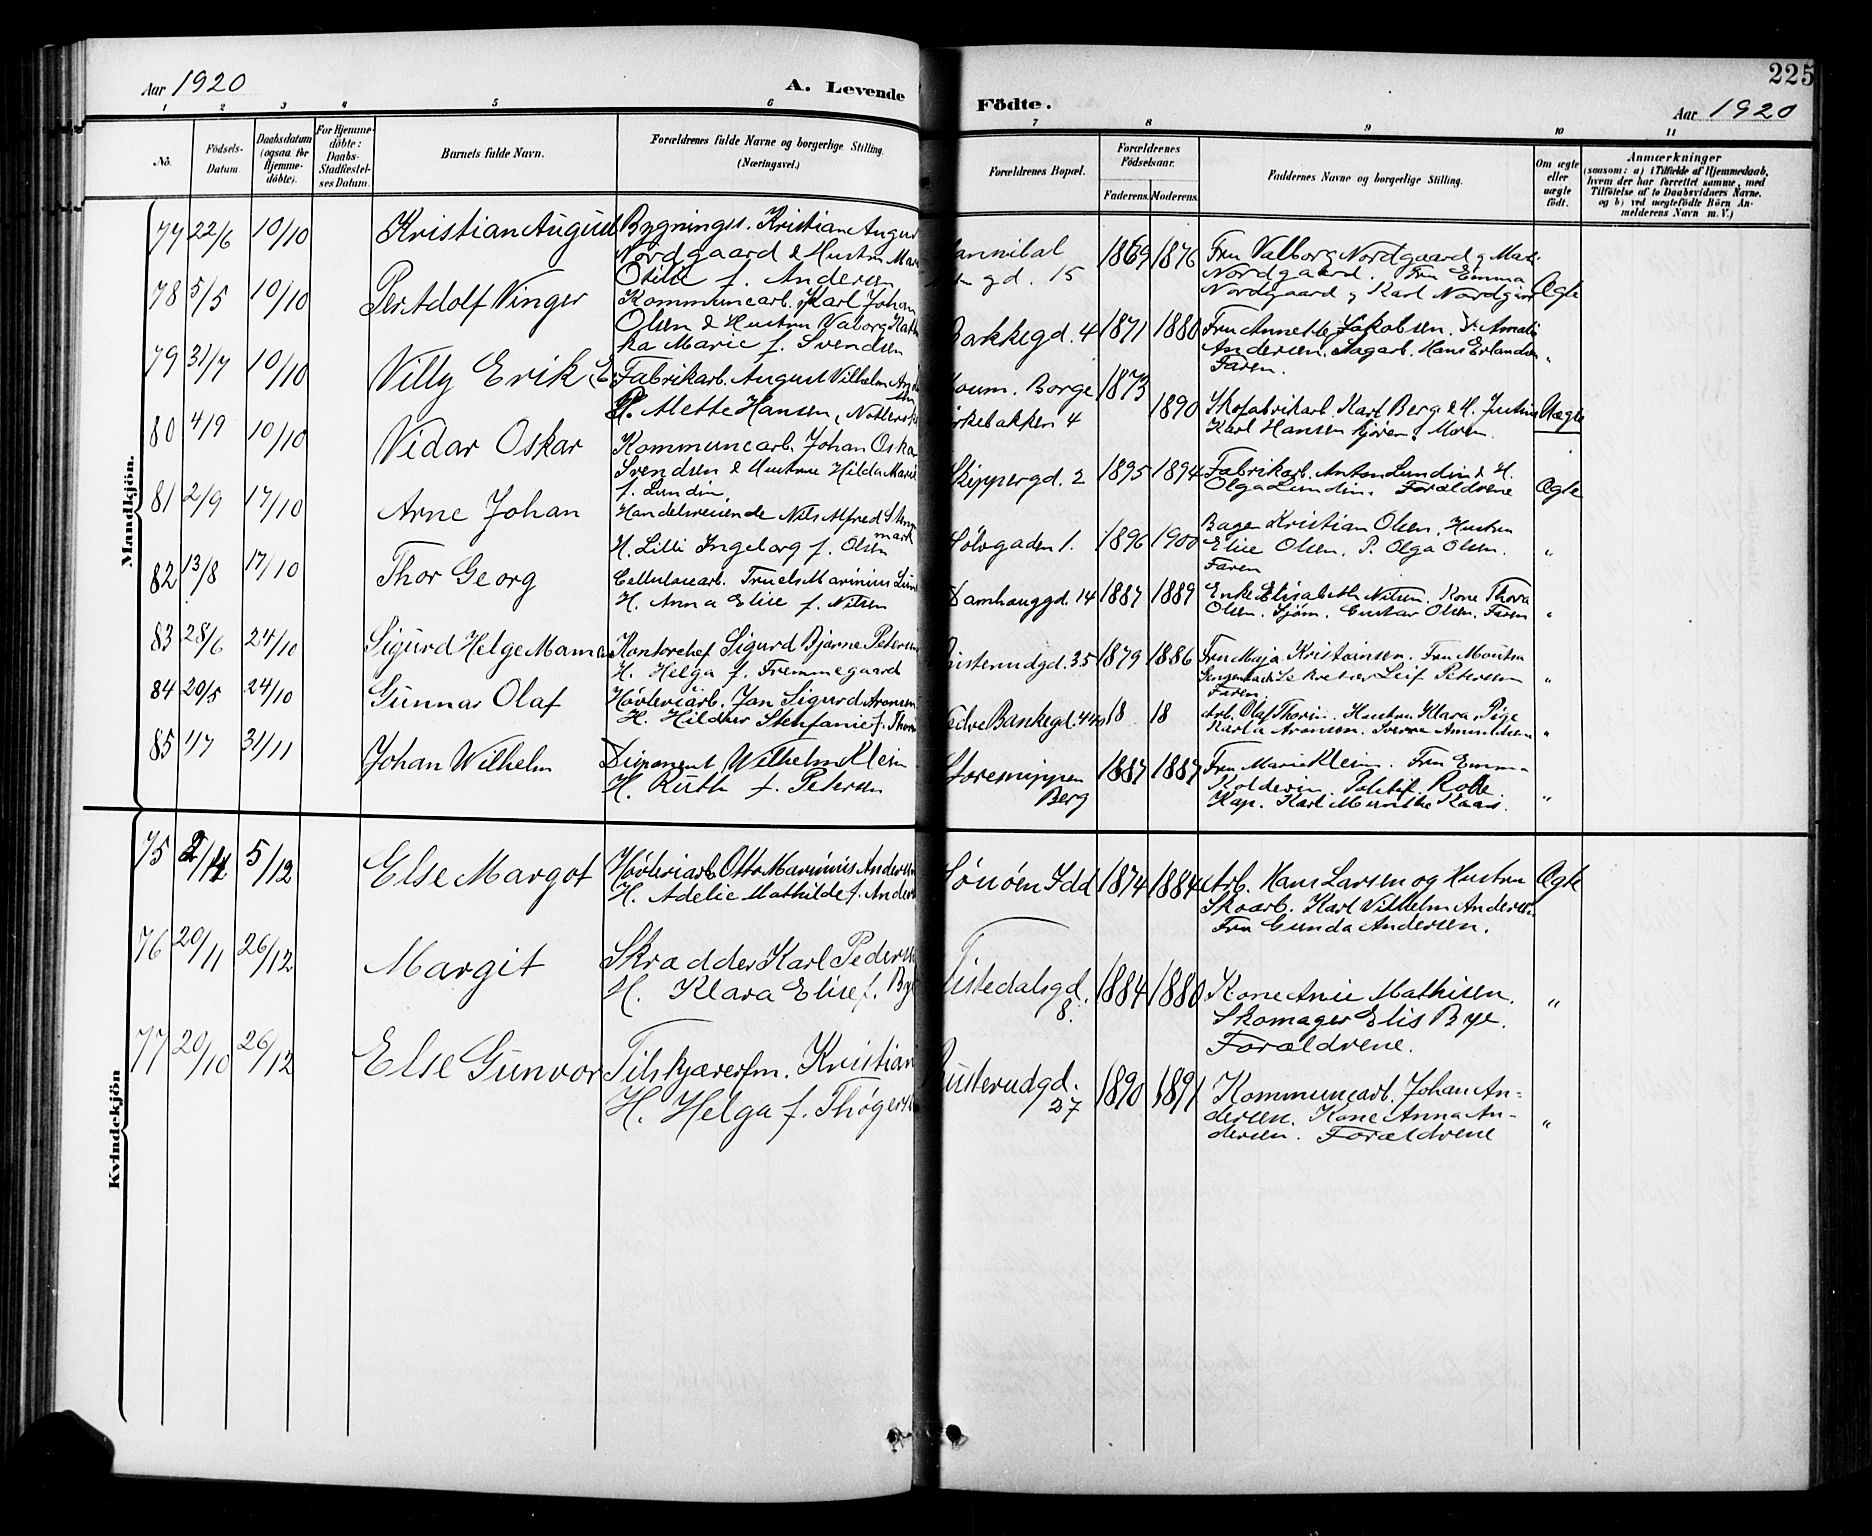 Aar 1920
A. Levende
Födte.
225
Aar 1920
1 2 3 4 5 6 7 8 9 10 11
No.
Födsels-Datum.
Daabsdatum (ogsaa for Hjemme-döbte).
For Hjemme-döbte: Daabs-Stadfæstel-ses Datum.
Barnets fulde Navn.
Forældrenes fulde Navne og borgerlige Stilling. (Næringsvei.)
Forældrenes Bopæl.
Forældrenes Födselsaar.
Faderens. Moderens.
Faddernes Navne og borgerlige Stilling.
Om ægte eller uægte födt.
Anmærkninger
(saasom: a) i Tilfælde af Hjemmedaab,
hvem der har forrettet samme, med
Tilföielse af to Daabsvidners Navne,
og b) ved uægtefödte Börn An-
melderens Navn m. V.)
Mandkjön.
77 22/6 10/10 Kristian August
Bygningss. Kristian August
Nordgaard & Hustru
Otilie f. Andersen
15
1869 1876
Fru Valborg Nordgaard
Nordgaard. Fru Emma
Nordgaard Karl Nordgaard
Ægte
78 5/5 10/10 Per Adolf Winger
Kommunearb. Karl Johan
Olsen & Hustru Valborg
Marie f. Svendsen
Bakkegd. 4 1871 1880
Fru Annette Jakobsen.
Andersen. Sagarb. Hans Erlandsen
Faren.
"
79 31/7 10/10 Villy Erik
Fabrikarb. August Vilhelm
P. Alette Hansen,
Borge
4
1873
1890
Skofabrikarb. Karl Berg & H.
Karl Hansen Moren.
Uægte
80 4/9 10/10 Vidar Oskar
Kommunearb. Johan Oska
Svendsen & Hustru Hilda Marie
f. Lundin.
Skippergd. 2 1895 1894
Fabrikarb. Anton Lundin & H.
Olga Lundin. Forældrene
Ægte
81 2/9 17/10 Arne Johan
Handelsreisende Nils Alfred
H. Lilli Ingeborg f. Olsen
Sølvgaden 1. 1896 1900
Bager Kristian Olsen, Hustru
Elise Olsen, P. Olga Olsen.
Faren
"
82 13/8 17/10 Thor Georg
Cellulosearb. Truels Marinius
H. Anna Elise f. Nilsen
Damhauggd. 14 1887 1889
Enke Elisabeth Nilsen. Kone Thora
Olsen. Sjøm. Gustav Olsen. Faren
"
83 28/6 24/10 Sigurd Helge
Kontorchef Sigurd Bjarne Petersen
H. Helga f. Fremmegaard
35 1879 1886
Fru Maja Kristiansen. Fru
Sekretær Leif Petersen
Faren.
"
84 20/5 24/10 Gunnar Olaf
Høvleriarb. Jan Sigurd Aronsen
H. Hildur Stenfanie f.
18 18
Arb. Olaf Thorin. Hustru Klara. Pige
Karla Aronsen. Sverre
"
85 1/7 31/11 Johan Wilhelm
Disponent Wilhelm Klein
H. Ruth f. Petersen
Berg
1887 1887
Fru Marie Klein. Fru Emma
Kolderin. Politif.
Kap. Karl
"
Kvindekjön
75 5/12 Else Margot
Høvleriarb. Otto Marinius Andersen
H. Adelie Mathilde f. Anders
Idd 1874 1884
Arb. Hans Larsen og Hustru
Skoarb. Karl Vilhelm Andersen
Fru Gunda Andersen.
Ægte
76 20/11 26/12 Margit
Skrædder Karl Pedersen
H. Klara Elise f. Bye
Tistedalsgd.
8.
1884 1880
Kone Anie Mathisen.
Skomager Elis Bye.
Forældrene.
"
77 20/10 26/12 Else Gunvor
Tilskjærerfm. Kristian
H. Helga f. Thøgersen
27
1890 1891
Kommunearb. Johan An-
dersen. Kone Anna An-
dersen. Forældrene
"